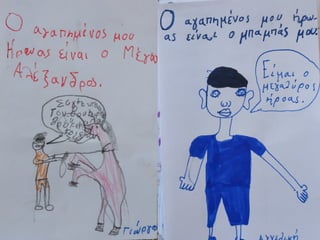 Ο αγαπημένος μου
Ήρωας είναι ο Μέγας
Αλέξανδρος.
Γεώργο
Ο αγαπημένος μου ήρω-
ας είναι ο μπαμπάς μου.
Είμαι ο
μεγαλύρος
ήρωας.
Αγγελική